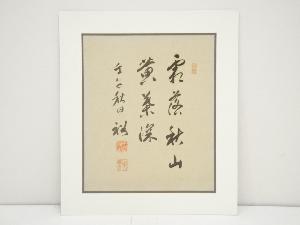 霜落秋山
黄葉深
秋日